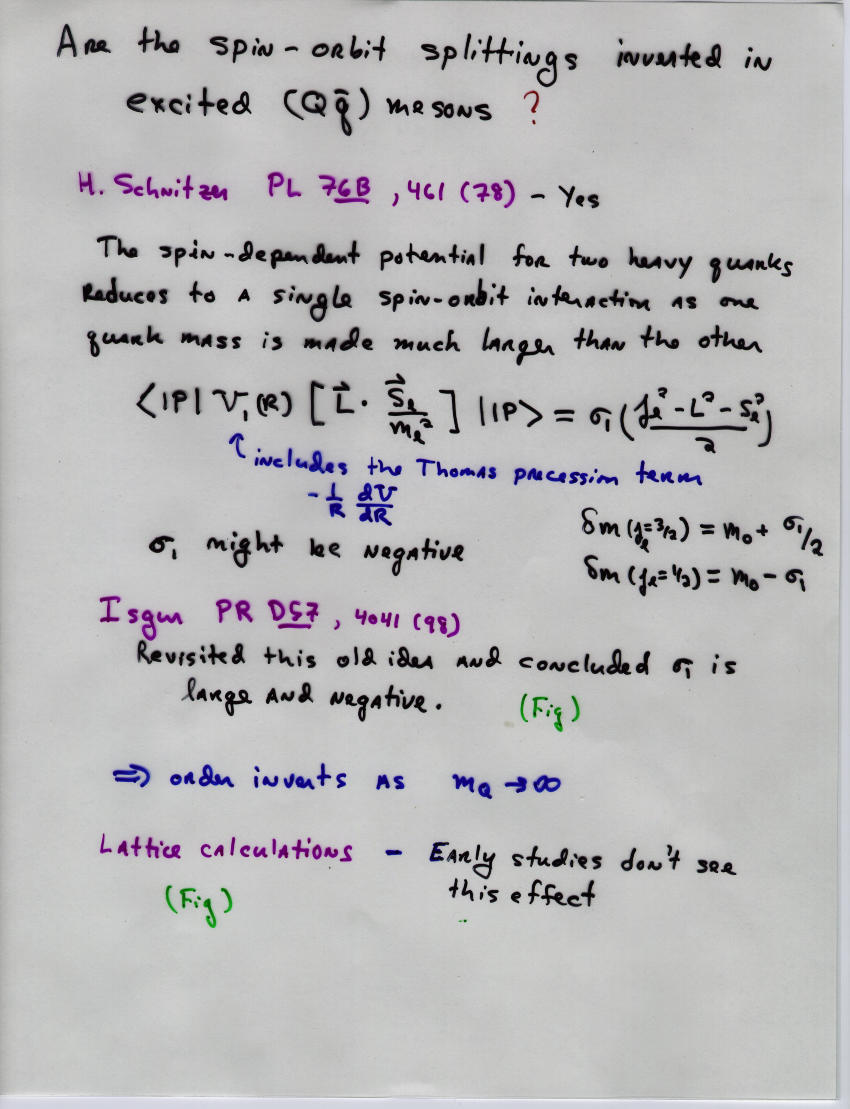 Are the spin-orbit splittings inverted in
excited (Qq̄) mesons ?
H. Schnitzer PL 76B, 461 (78) - Yes
The spin-dependent potential for two heavy quarks
Reduces to a single spin-orbit interaction as one
quark mass is made much larger than the other
⟨1P| V₁(R) [L⃗ · S⃗ₗ/mₗ²] |1P⟩ = σ₁ (jₗ² - L² - Sₗ²)/2
↑ includes the Thomas precession term
- 1/R dV/dR
σ₁ might be negative
δm (jₗ=3/2) = m₀ + σ₁/2
δm (jₗ=1/2) = m₀ - σ₁
Isgur PR D57, 4041 (98)
Revisited this old idea and concluded σ₁ is
large and negative. (Fig)
⇒ order inverts as m_Q → ∞
Lattice calculations - Early studies don't see
this effect
(Fig)